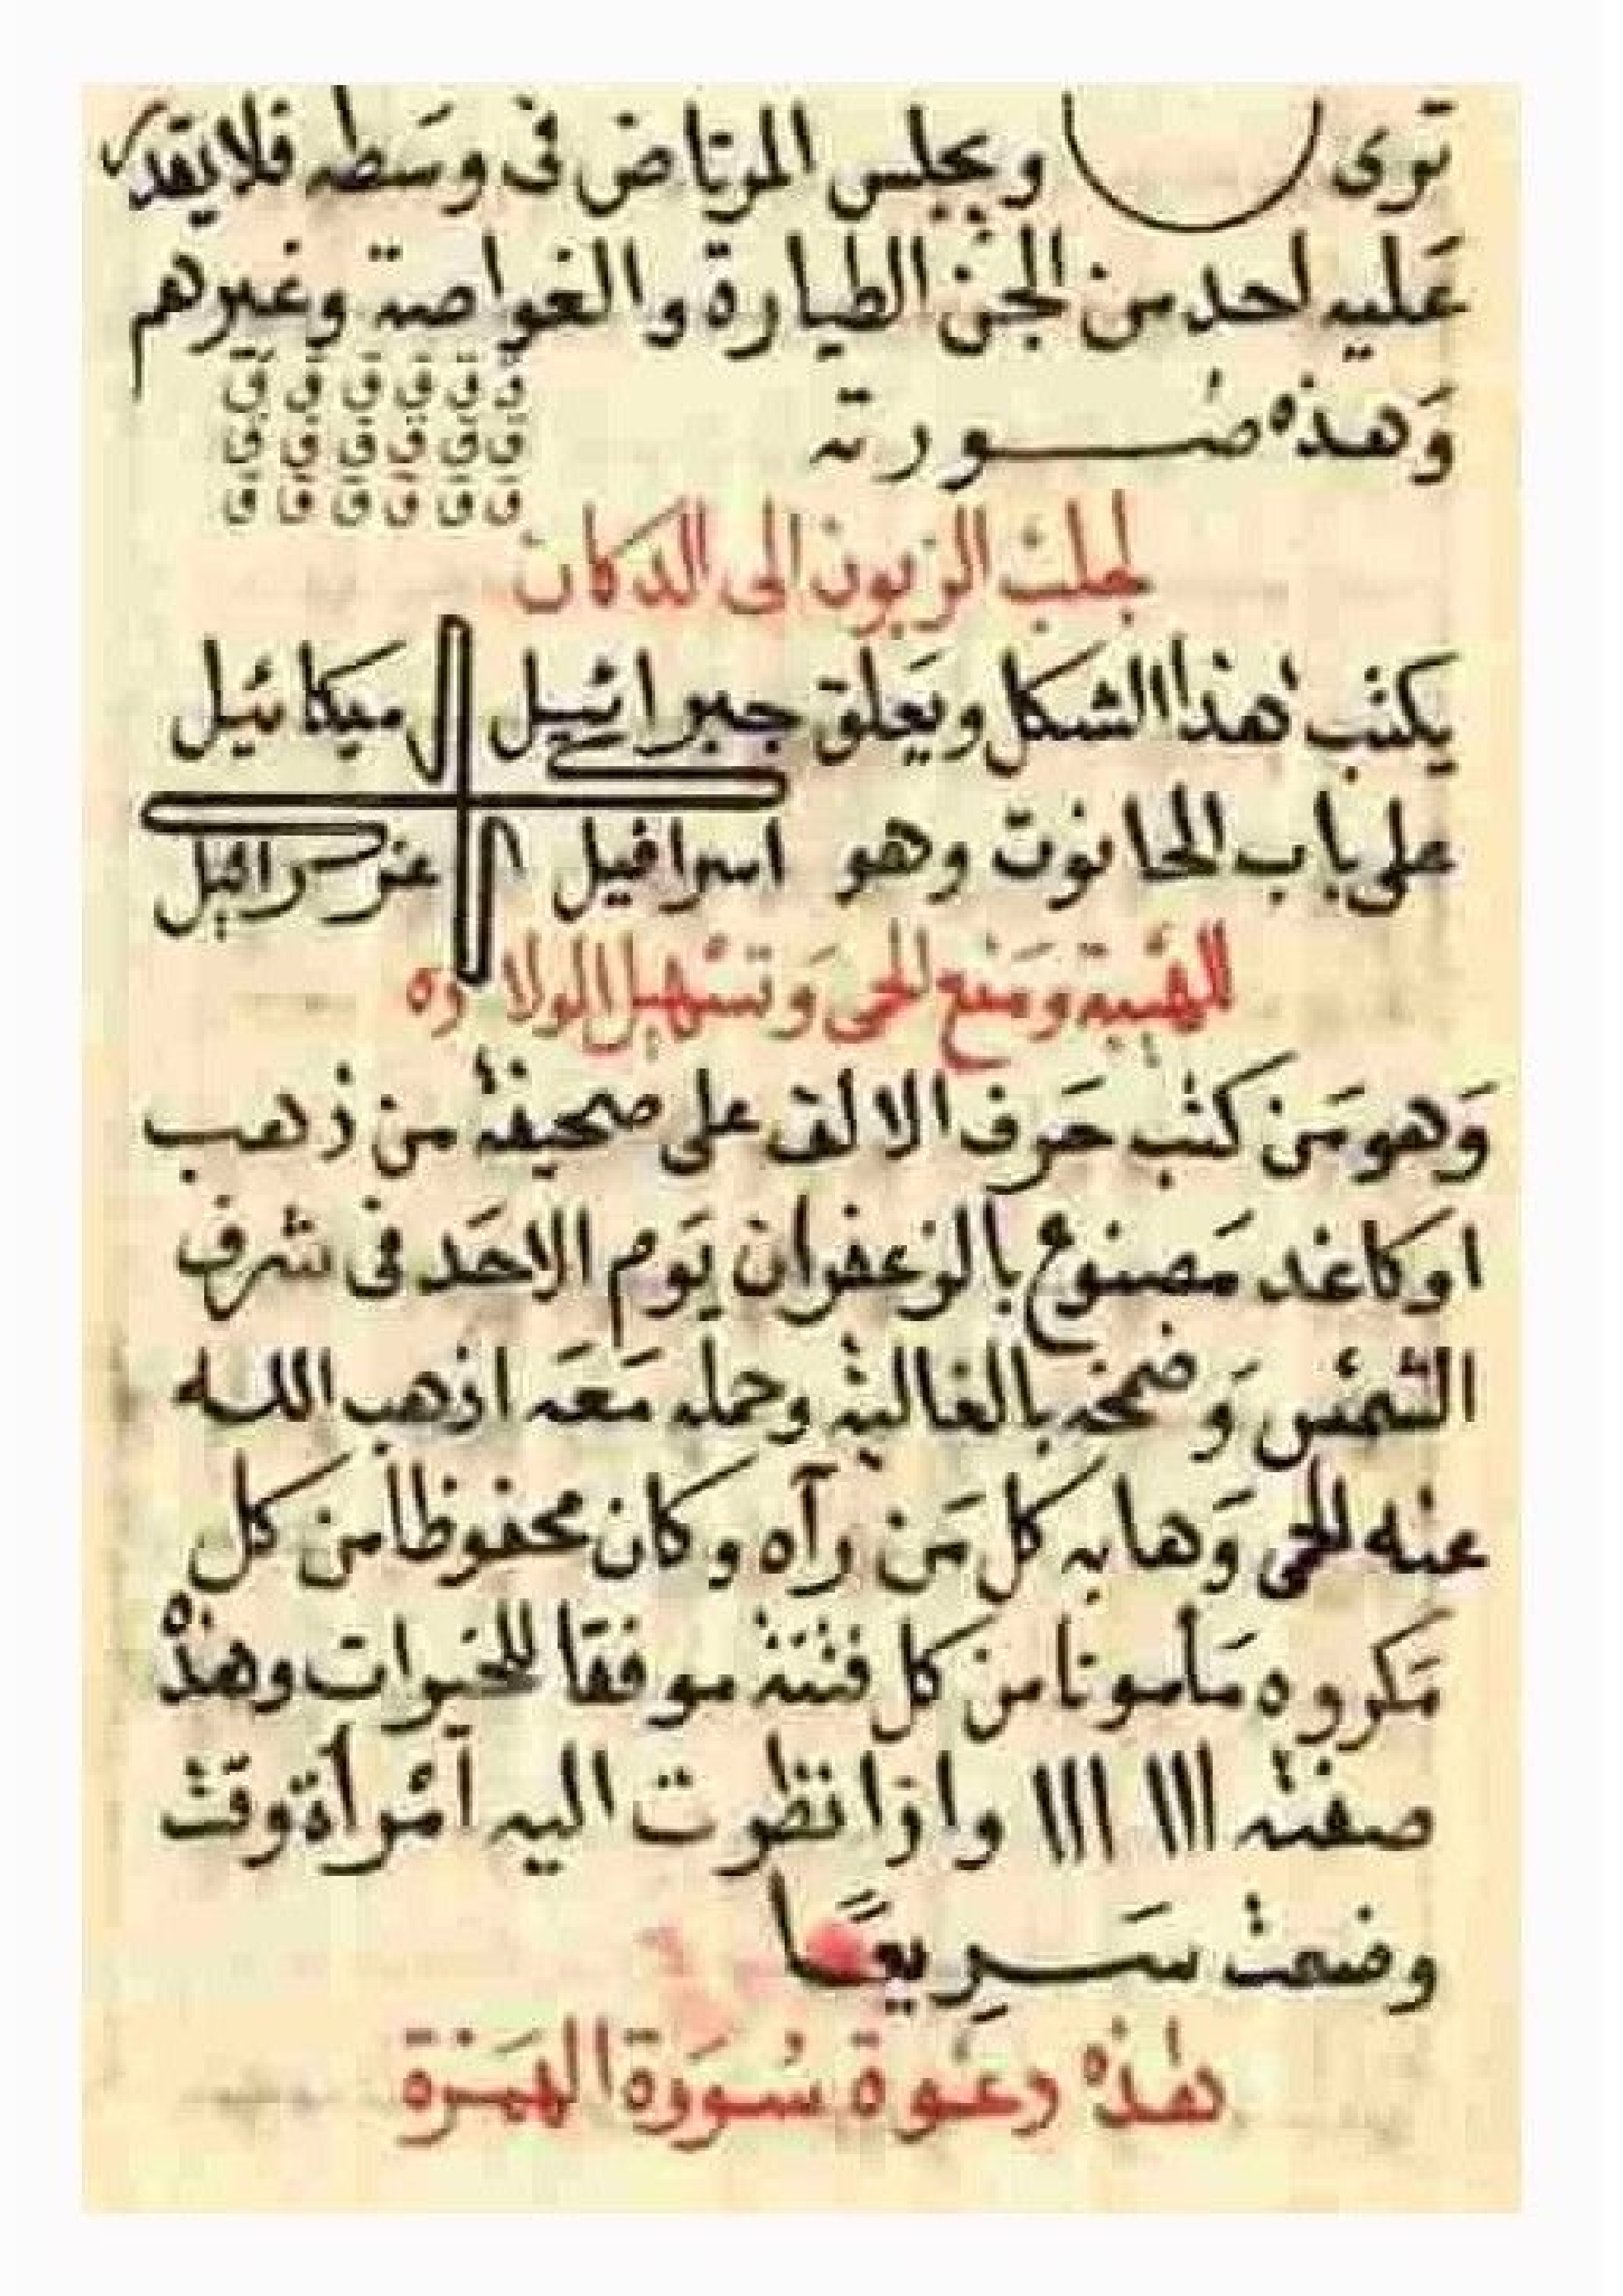 ترى ويجلس المرتاض فى وسَطه فلا يقدر
عَليه احد من الجن الطيارة والغواصة وغيرهم
ق ق ق ق ق ق
وَهذه صُورته
ق ق ق ق ق ق
ق ق ق ق ق ق
لجلب الزبون الى الدكان
يكتب هذا الشكل ويَعلق جبرائيل ميكائيل
على باب الحانوت وهو اسرافيل عزرائيل
للهَيبة ومَنع الحمى وَتسهيل الولادة
وَهو مَن كتب حَرف الالف على صحيفة من ذهب
او كاغد مَصنوع بالزعفران يَوم الاحَد فى شرف
الشمس وَضمخه بالغالية وحمله مَعَه اذهب الله
عنه الحمى وَهابه كل مَن رآه وكان محفوظا من كل
مَكروه مَأمونا من كل فتنَة موفقا للخيرات وهذه
صفته ااا ااا ااا واذا نظرت اليه امْرأة وقت
وضعت سَرِيعًا
هذه دعوة سُورَة الهمَزة